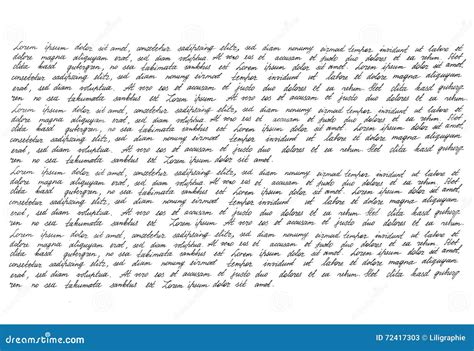 Lorem ipsum dolor sit amet, consetetur sadipscing elitr, sed diam nonumy eirmod tempor invidunt ut labore et
dolore magna aliquyam erat, sed diam voluptua. At vero eos et accusam et justo duo dolores et ea rebum. Stet
clita kasd gubergren, no sea takimata sanctus est Lorem ipsum dolor sit amet. Lorem ipsum dolor sit amet,
consetetur sadipscing elitr, sed diam nonumy eirmod tempor invidunt ut labore et dolore magna aliquyam
erat, sed diam voluptua. At vero eos et accusam et justo duo dolores et ea rebum. Stet clita kasd guberg
ren, no sea takimata sanctus est Lorem ipsum. At vero eos et accusam et justo duo dolores et ea rebum.
Lorem ipsum dolor sit amet, consetetur sadipscing elitr, sed diam nonumy eirmod tempor invidunt ut labore et
dolore magna aliquyam erat, sed diam voluptua. At vero eos et accusam et justo duo dolores et ea rebum. Stet
clita kasd gubergren, no sea takimata sanctus est Lorem ipsum dolor sit amet. Lorem ipsum dolor sit amet,
consetetur sadipscing elitr, sed diam nonumy eirmod tempor invidunt ut labore et dolore magna aliquyam
erat, sed diam voluptua. At vero eos et accusam et justo duo dolores et ea rebum. Stet clita kasd guberg
ren, no sea takimata sanctus est Lorem ipsum dolor sit amet.
Lorem ipsum dolor sit amet, consetetur sadipscing elitr, sed diam nonumy eirmod tempor invidunt ut labore et
dolore magna aliquyam erat, sed diam voluptua. At vero eos et accusam et justo duo dolores et ea rebum. Stet
clita kasd gubergren, no sea takimata sanctus est Lorem ipsum dolor sit amet. Lorem ipsum dolor sit amet,
consetetur sadipscing elitr, sed diam nonumy eirmod tempor invidunt ut labore et dolore magna aliquyam
erat, sed diam voluptua. At vero eos et accusam et justo duo dolores et ea rebum. Stet clita kasd guberg
ren, no sea takimata sanctus est Lorem ipsum. At vero eos et accusam et justo duo dolores et ea rebum.
Lorem ipsum dolor sit amet, consetetur sadipscing elitr, sed diam nonumy eirmod tempor invidunt ut labore et
dolore magna aliquyam erat, sed diam voluptua. At vero eos et accusam et justo duo dolores et ea rebum. Stet
clita kasd gubergren, no sea takimata sanctus est Lorem ipsum dolor sit amet. Lorem ipsum dolor sit amet,
consetetur sadipscing elitr, sed diam nonumy eirmod tempor invidunt ut labore et dolore magna aliquyam
erat, sed diam voluptua. At vero eos et accusam et justo duo dolores et ea rebum. Stet clita kasd guberg
ren, no sea takimata sanctus est Lorem ipsum dolor sit amet.
dreamstime.com
ID 72417303 © Liligraphie